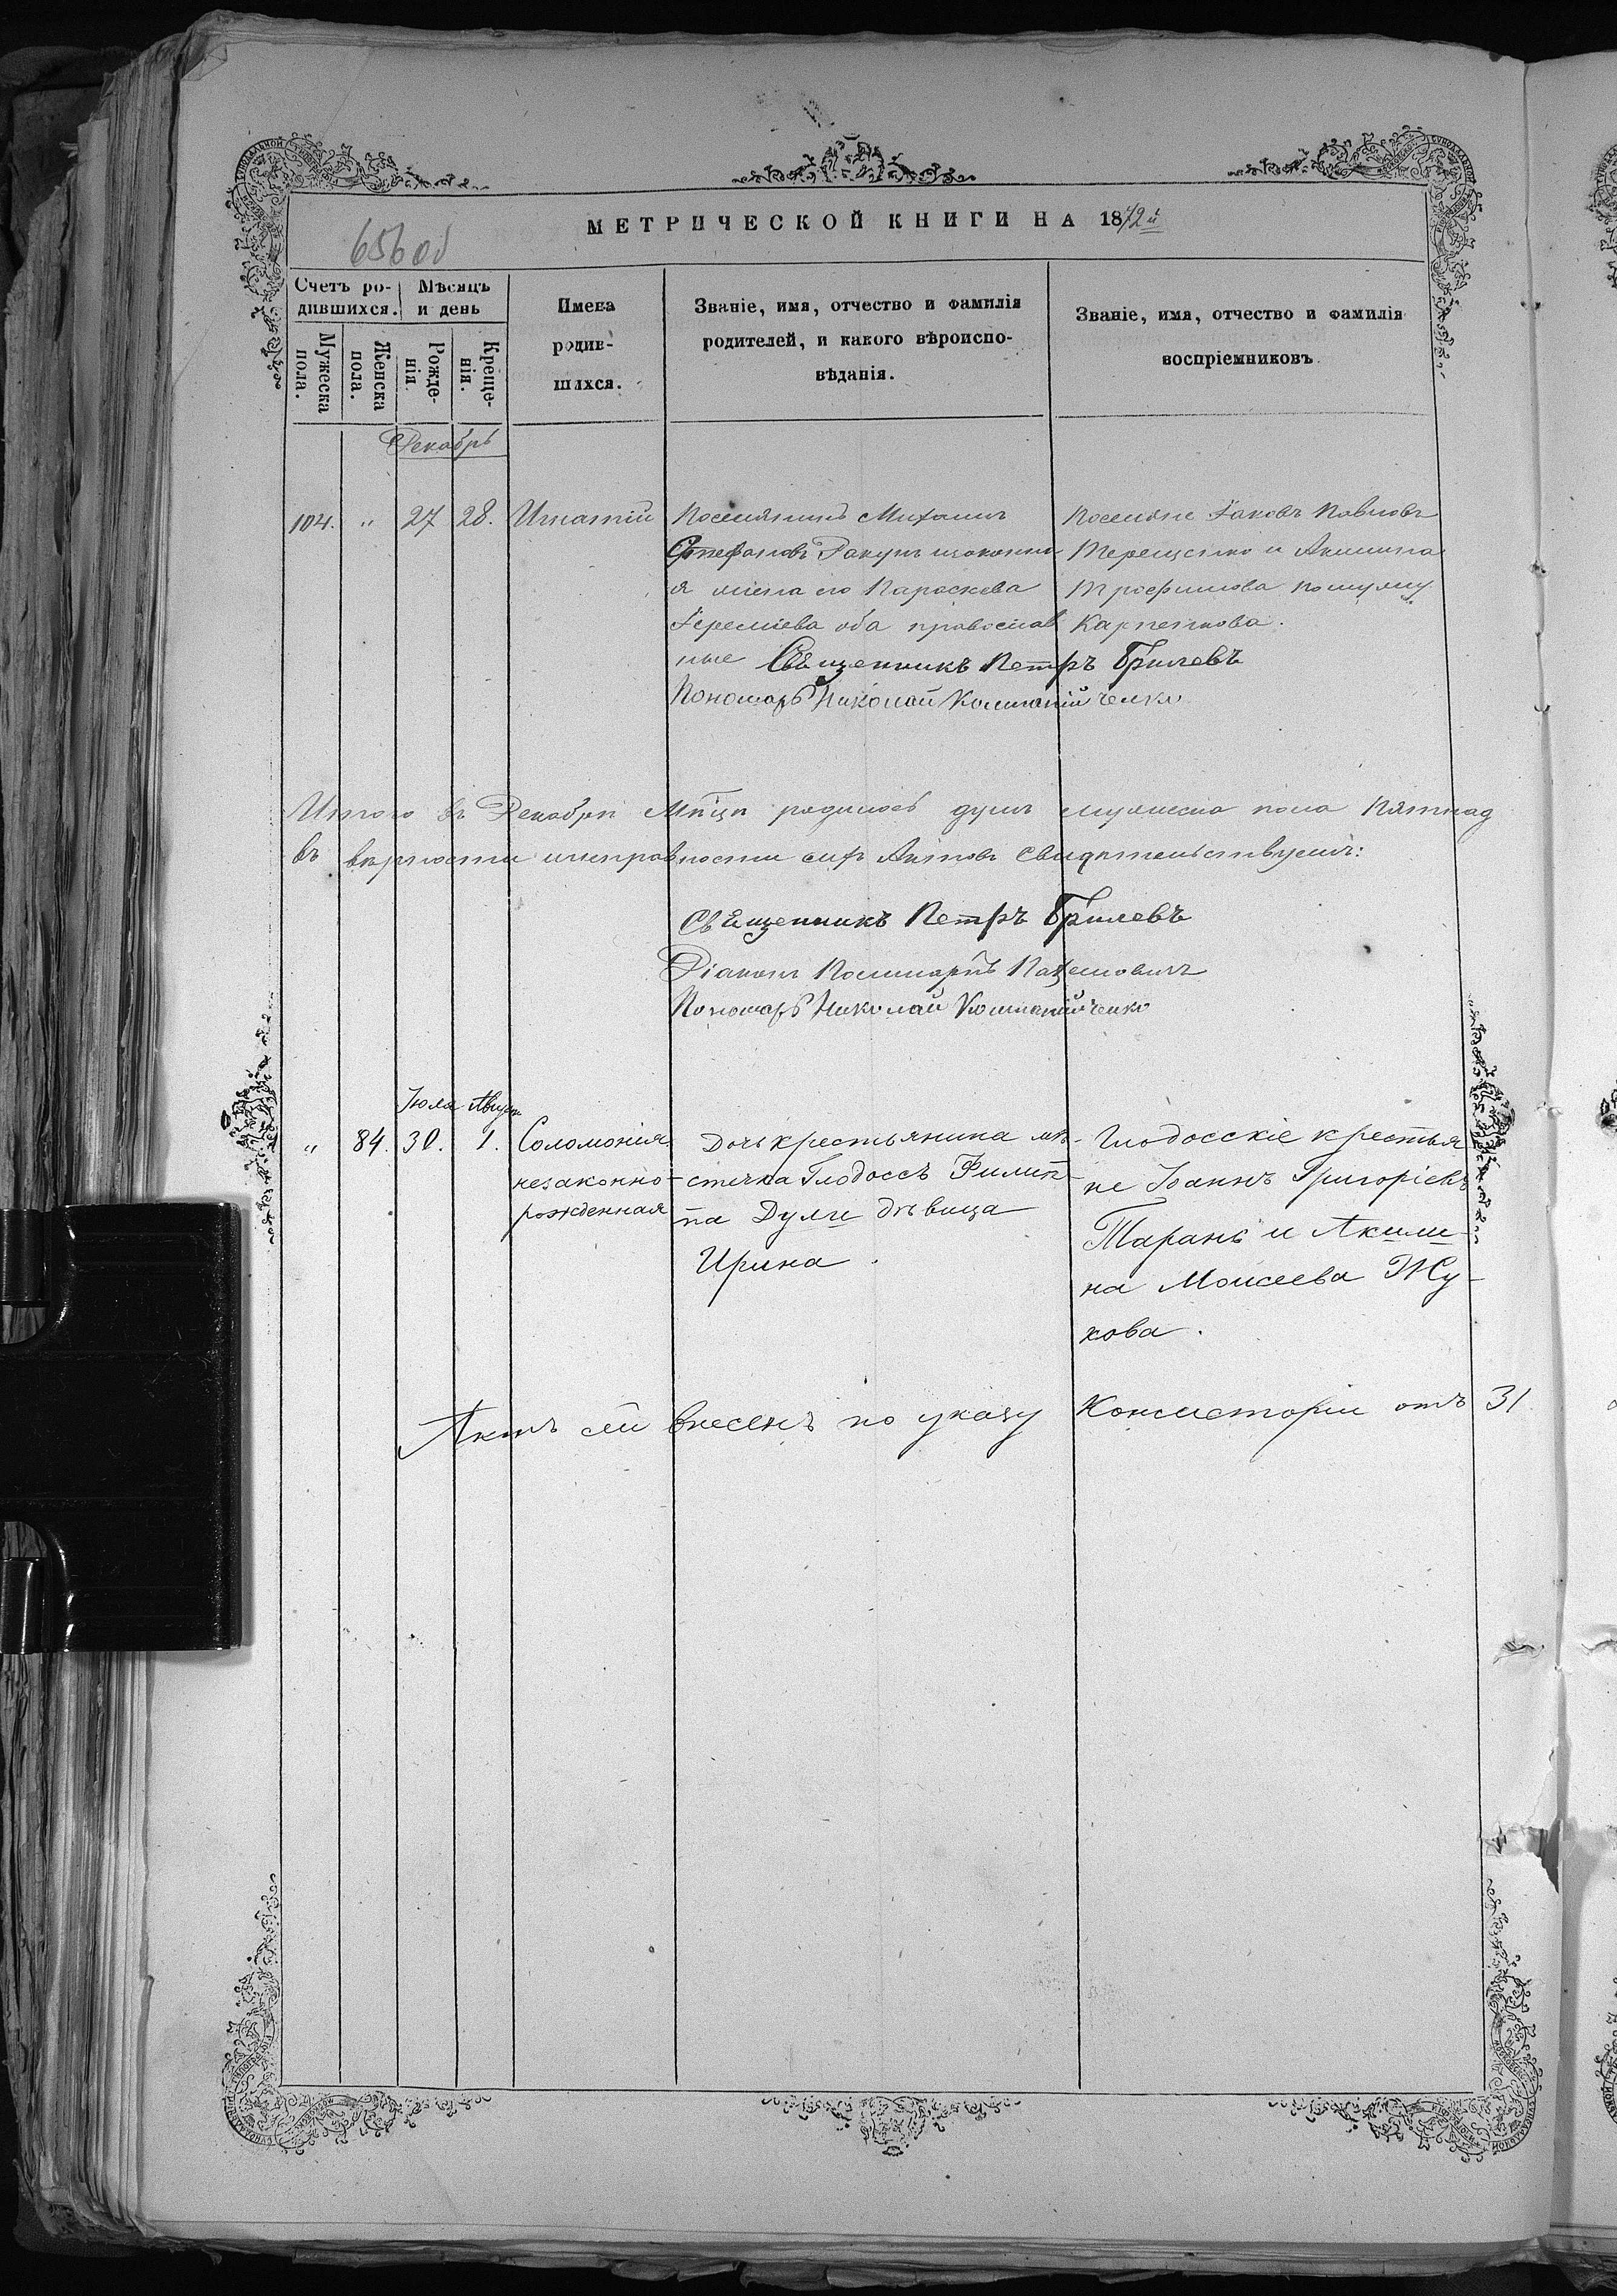 МЕТРИЧЕСКОЙ КНИГИ НА 1872й
656 об
Счетъ ро-
дившихся.
Мѣсяцъ
и день
Мужеска пола.
Женска пола.
Рожде-
нія.
Креще-
нія.
Имена
родив-
шихся.
Званіе, имя, отчество и фамилія
родителей, и какого вѣроиспо-
вѣданія.
Званіе, имя, отчество и фамилія
воспріемниковъ
Декабрь
104. " 27 28. Игнатій
Поселянинъ Михаилъ
Стефановъ законна
я жена его Параскева
Іереміева оба православ
ные Священникъ Петръ Брилевъ
Пономарь Николай Компанійченко
Поселяне Іаковъ Павловъ
Терещенко и Акилина
Трофимова по мужу
Карпенкова.
Итого въ Декабрѣ Мѣцѣ родилось душъ мужеска пола Пятнад
въ вѣрности и исправности сихъ Актовъ свидѣтельствуемъ:
Священникъ Петръ Брилевъ
Діаконъ
Пономарь Николай Компанійченко
Іюля Август
" 84. 30. 1. Соломонія
незаконно-
рожденная
Дочь крестьянина мѣ-
стечка Глодоссъ Филип-
па Дули дѣвица
Ирина.
Глодосскіе крестья
не Іоаннъ Григоріевъ
Таранъ и Акили-
на Моисеева Жу-
кова.
Актъ сей внесенъ по указу Консисторіи отъ 31